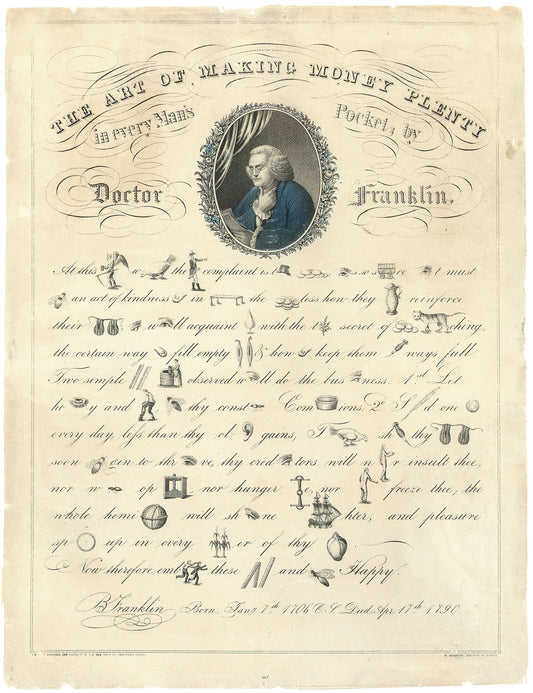 THE ART OF MAKING MONEY PLENTY
in every Man's Pocket; by
Doctor Franklin.
At this w the complaint is t is so s ce t must
an act of kindness in the less how they reinforce
their w ll acquaint with the t secret of ching.
the certain way fill empty & how keep them ways full.
Two simple observed w ll do the bus ness. 1.st Let
ho y and thy const Com ions. 2.d S d one
every day, less than thy cl gains, T sh thy
soon gin to thr ve, thy cred tors will n r insult thee,
nor w op nor hunger nor freeze thee, the
whole hemi will sh ne hter, and pleasure
sp up in every er of thy
Now therefore emb these and Happy.
B Franklin Born, Jan.y 7th 1706 O.S. Died Apr. 17th 1790.